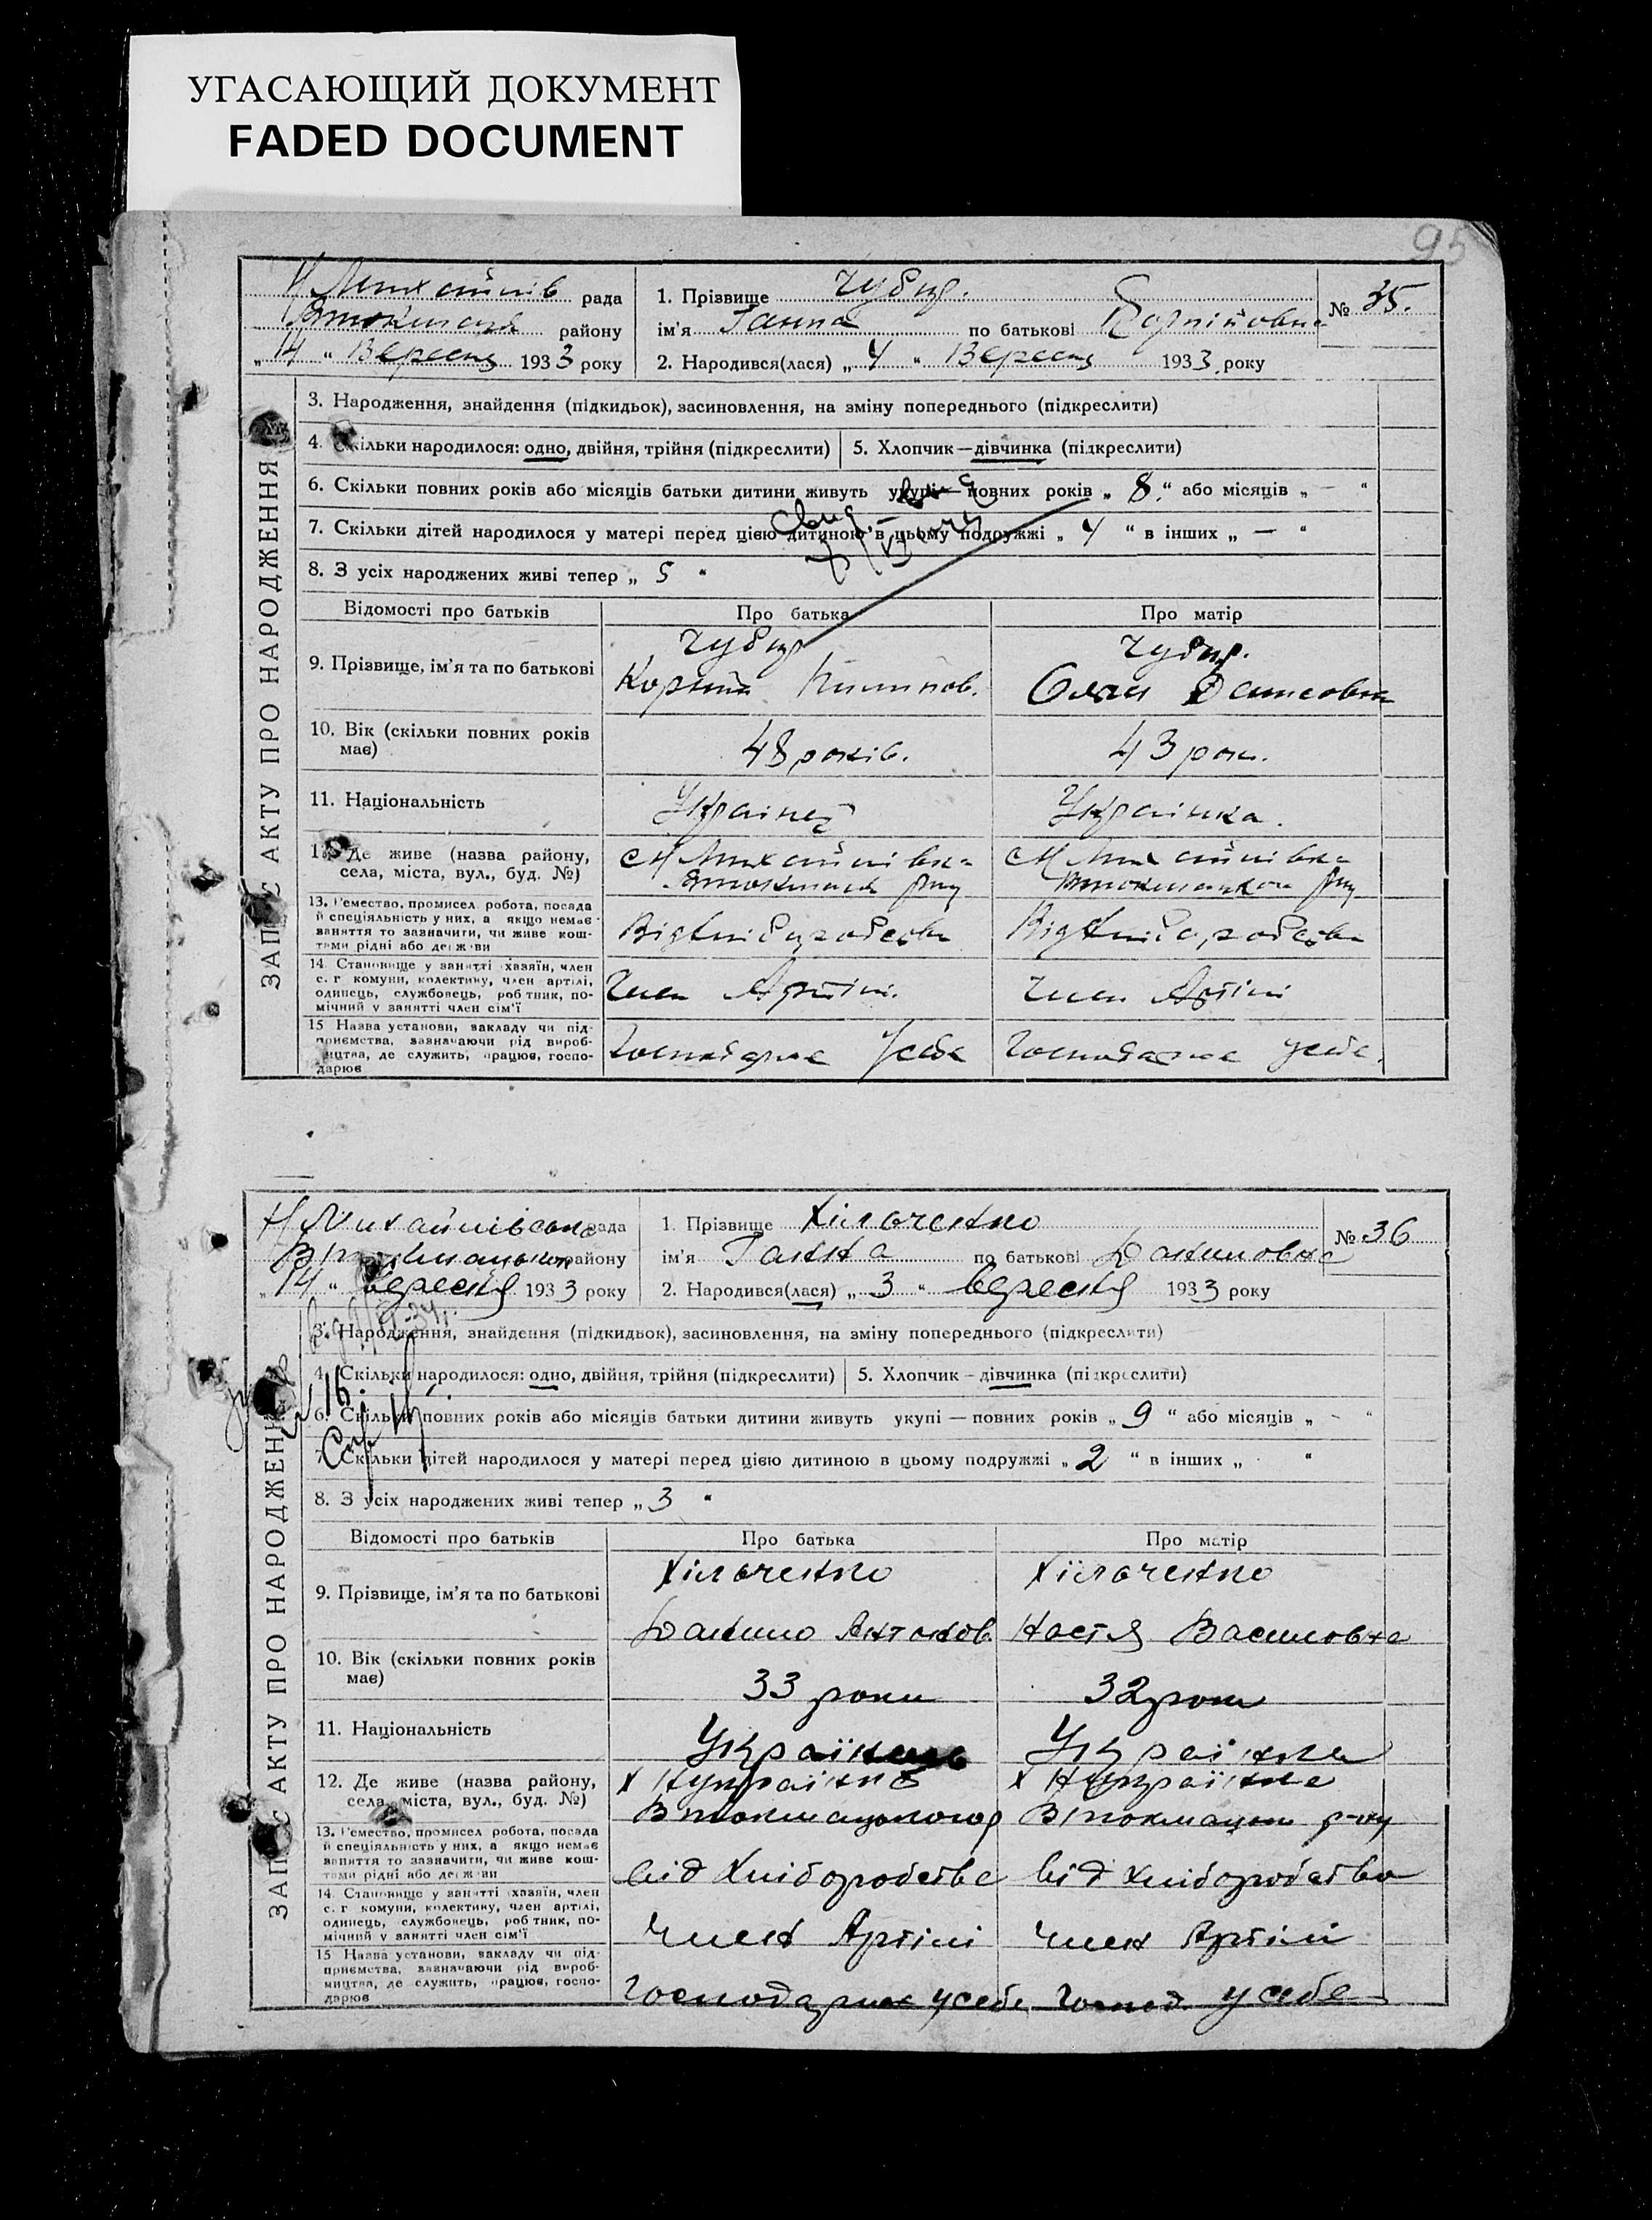 УГАСАЮЩИЙ ДОКУМЕНТ
FADED DOCUMENT
95
рада
району
„14“ Вересня 1933 року
1. Прізвище Чубир.
ім'я Ганна по батькові Корнійовна
2. Народився(лася) „4“ Вересня 1933 року
№ 35.
ЗАПИС АКТУ ПРО НАРОДЖЕННЯ
3. Народження, знайдення (підкидьок), засиновлення, на зміну попереднього (підкреслити)
4. Скільки народилося: одно, двійня, трійня (підкреслити) 5. Хлопчик—дівчинка (підкреслити)
6. Скільки повних років або місяців батьки дитини живуть укупі—повних років „8.“ або місяців „—“
7. Скільки дітей народилося у матері перед цією дитиною в цьому подружжі „4“ в інших „—“
8. З усіх народжених живі тепер „5“
Відомості про батьків Про батька Про матір
9. Прізвище, ім'я та по батькові
Чубир Чубир.
Корній
10. Вік (скільки повних років має)
48 років. 43 рок.
11. Національність
Українец Українка.
12. Де живе (назва району, села, міста, вул., буд. №)
13. Ремество, промисел, робота, посада й спеціяльність у них, а якщо немає заняття то зазначити, чи живе коштами рідні або держави
14. Становище у занятті хазяїн, член с. г комуни, колективу, член артілі, одинець, службовець, робітник, помічний у занятті член сім'ї
Член Артіли. Член Артіли
15 Назва установи, закладу чи підприємства, зазначаючи рід виробництва, де служить, працює, господарює
Господарює у себе Господарює у себе.
Н/Михайлівська рада
району
„14“ вересня 1933 року
1. Прізвище Хільченко
ім'я Ганна по батькові Даниловна
2. Народився(лася) „3“ вересня 1933 року
№ 36
ЗАПИС АКТУ ПРО НАРОДЖЕННЯ
3. Народження, знайдення (підкидьок), засиновлення, на зміну попереднього (підкреслити)
4. Скільки народилося: одно, двійня, трійня (підкреслити) 5. Хлопчик—дівчинка (підкреслити)
6. Скільки повних років або місяців батьки дитини живуть укупі—повних років „9“ або місяців „-“
7. Скільки дітей народилося у матері перед цією дитиною в цьому подружжі „2“ в інших „ “
8. З усіх народжених живі тепер „3“
Відомості про батьків Про батька Про матір
9. Прізвище, ім'я та по батькові
Хільченко Хільченко
Данило Антонов. Настя Василовна
10. Вік (скільки повних років має)
33 роки 32 роки
11. Національність
Українець Українка
12. Де живе (назва району, села, міста, вул., буд. №)
х Н/українка х Н/українка
13. Ремество, промисел, робота, посада й спеціяльність у них, а якщо немає заняття то зазначити, чи живе коштами рідні або держави
від хліборобства від хліборобства
14. Становище у занятті хазяїн, член с. г комуни, колективу, член артілі, одинець, службовець, робітник, помічний у занятті член сім'ї
член Артілі член Артіли
15 Назва установи, закладу чи підприємства, зазначаючи рід виробництва, де служить, працює, господарює
господарює у себе господ. у себе